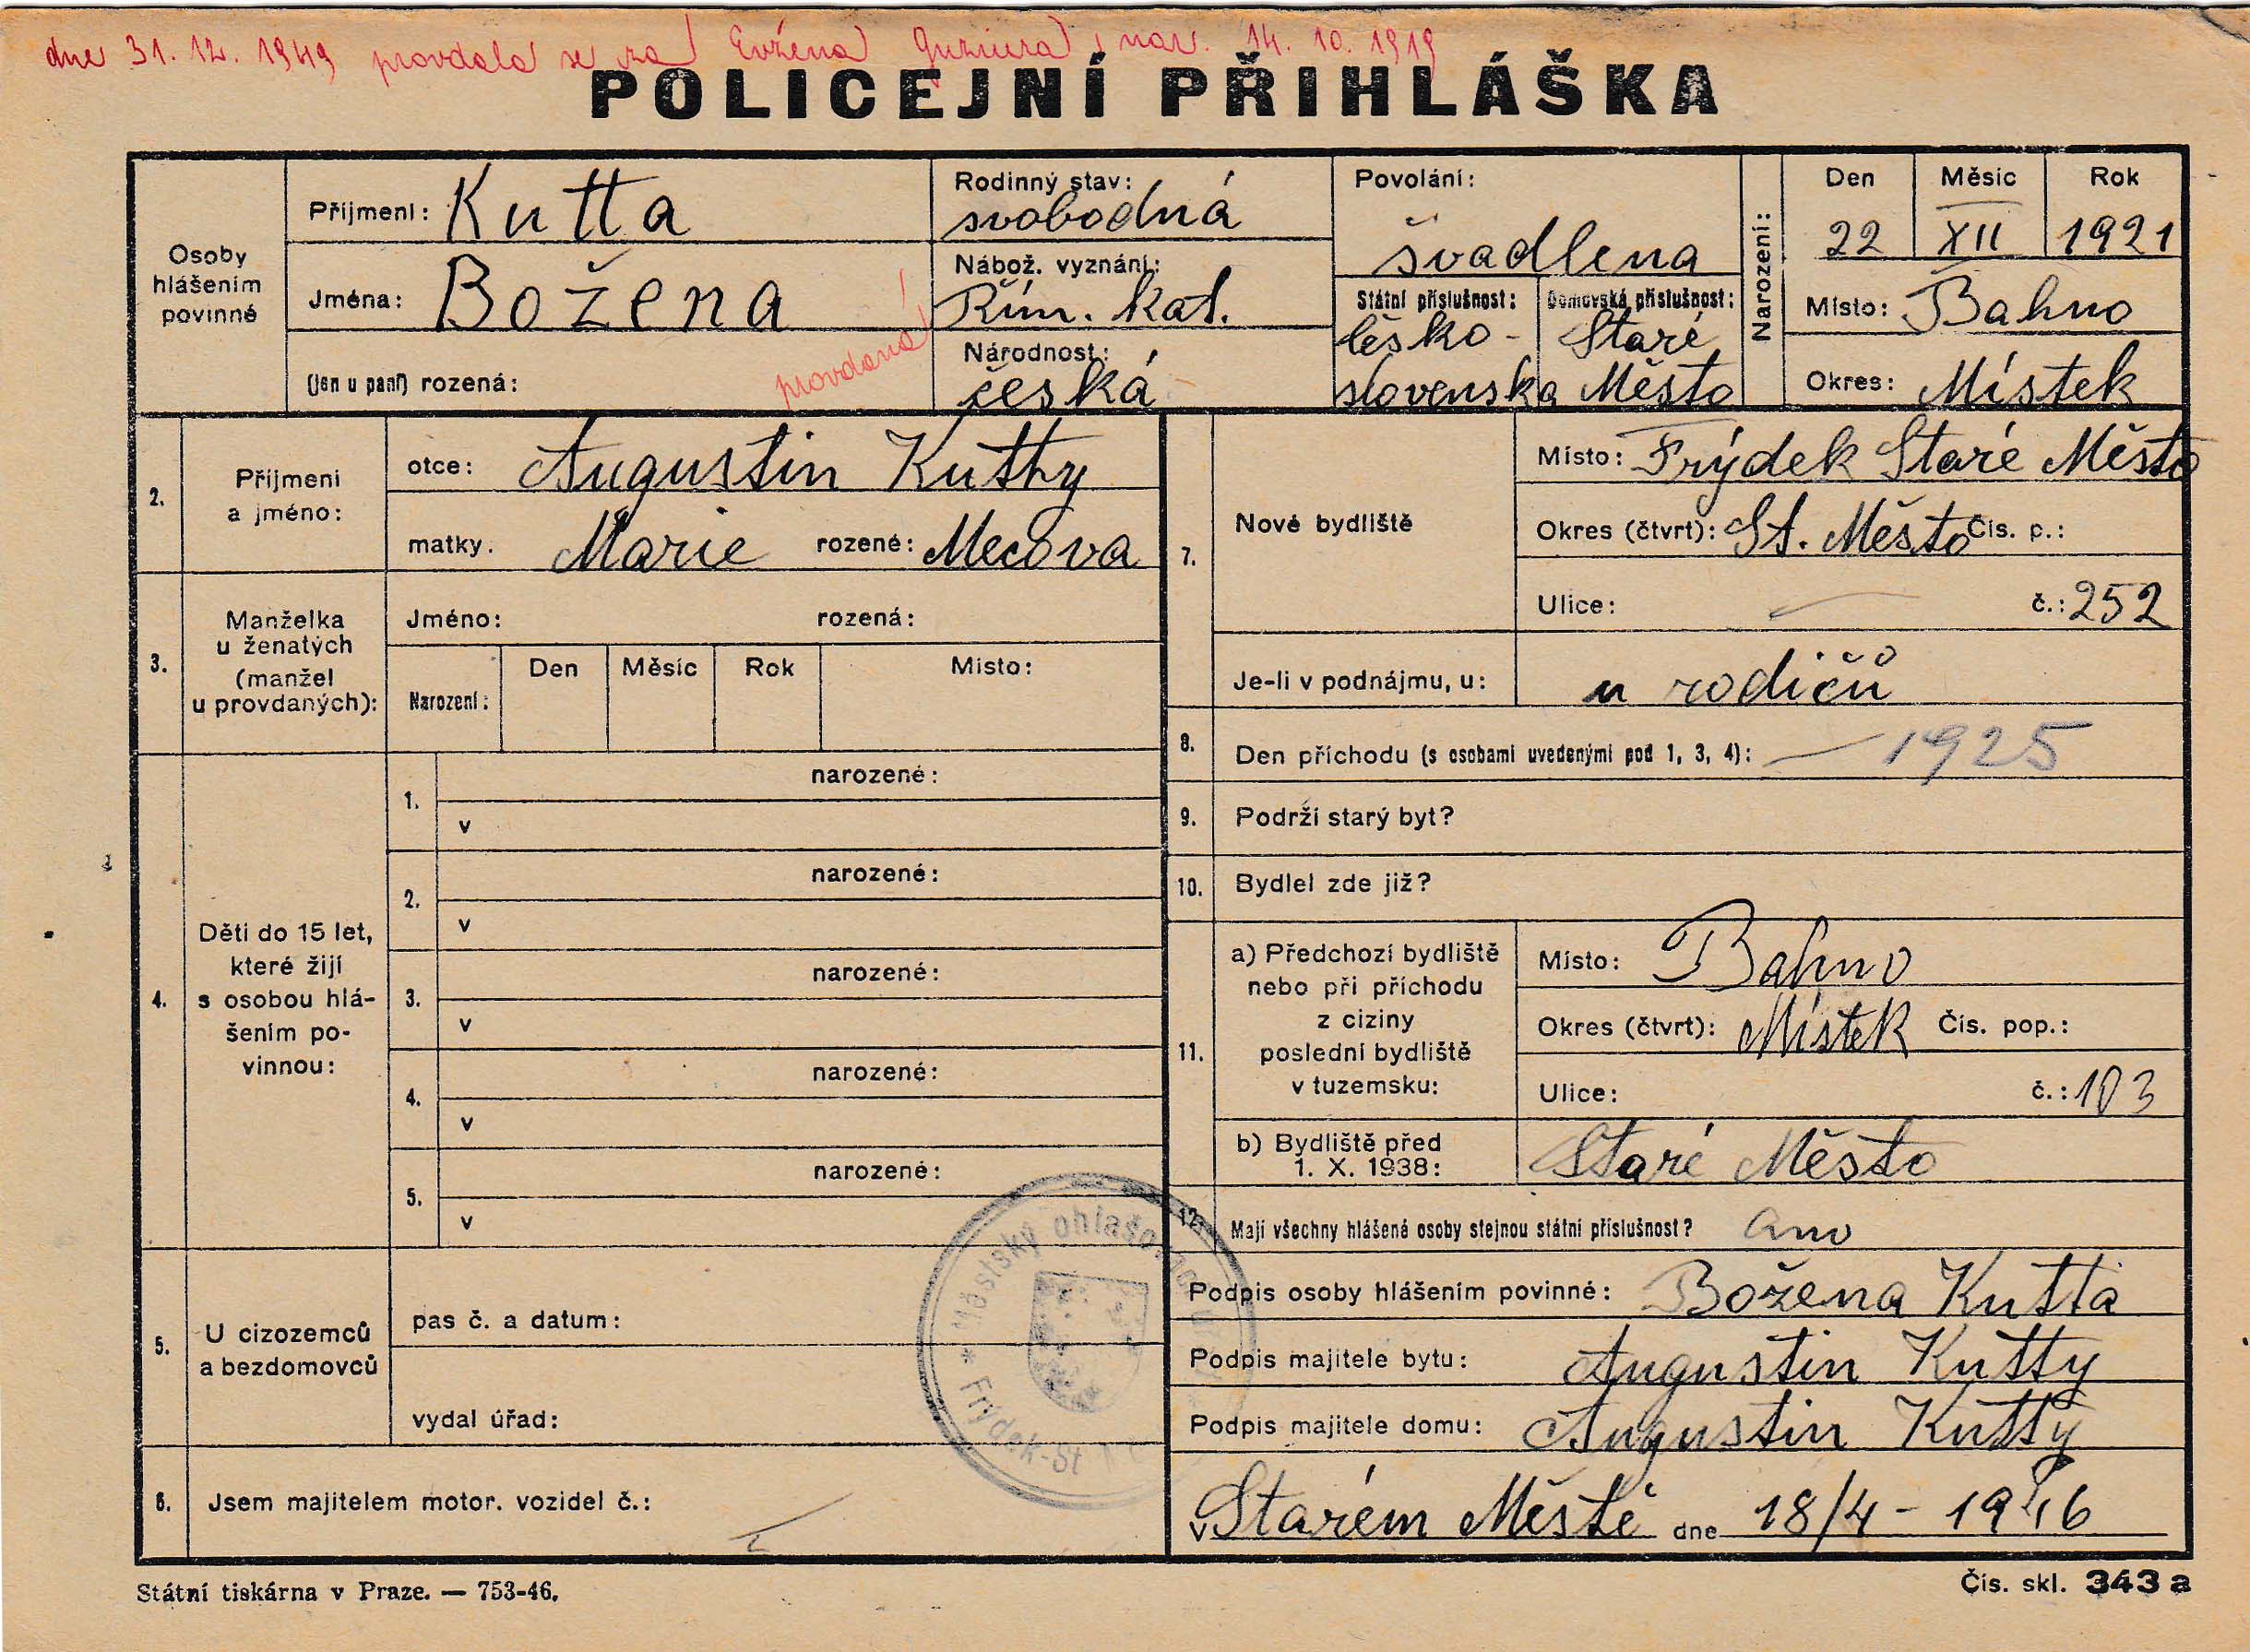 dne 31. 12. 1949 provdala se za Evžena nar. 14. 10. 1919
POLICEJNÍ PŘIHLÁŠKA
Osoby hlášením povinné
Příjmení: Kutta
Jména: Božena
(jen u paní) rozená:
provdaná
Rodinný stav: svobodná
Nábož. vyznání: Řím. kat.
Národnost: česká
Povolání: švadlena
Státní příslušnost: česko-
slovenska
Domovská příslušnost: Staré
Město
Narození:
Den Měsíc Rok
22 XII 1921
Místo: Bahno
Okres: Místek
2. Příjmení a jméno:
otce: Augustin Kutty
matky. Marie rozené: Mecova
3. Manželka
u ženatých
(manžel
u provdaných):
Jméno: rozená:
Narození: Den Měsíc Rok Místo:
4. Děti do 15 let,
které žijí
s osobou hlá-
šením po-
vinnou:
1. narozené:
v
2. narozené:
v
3. narozené:
v
4. narozené:
v
5. narozené:
v
5. U cizozemců
a bezdomovců
pas č. a datum:
vydal úřad:
6. Jsem majitelem motor. vozidel č.:
7. Nové bydliště
Místo: Frýdek Staré Město
Okres (čtvrt): St. Město Čís. p.:
Ulice: č.: 252
Je-li v podnájmu, u: u rodičů
8. Den příchodu (s osobami uvedenými pod 1, 3, 4): — 1925
9. Podrží starý byt?
10. Bydlel zde již?
11. a) Předchozí bydliště
nebo při příchodu
z ciziny
poslední bydliště
v tuzemsku:
Místo: Bahno
Okres (čtvrt): Místek Čís. pop.:
Ulice: č.: 103
b) Bydliště před
1. X. 1938: Staré Město
12. Mají všechny hlášené osoby stejnou státní příslušnost? ano
Podpis osoby hlášením povinné: Božena Kutta
Podpis majitele bytu: Augustin Kutty
Podpis majitele domu: Augustin Kutty
v Starém Městě dne 18/4 - 1946
Městský ohlašovací
* Frýdek-St
Státní tiskárna v Praze. — 753-46.
Čís. skl. 343 a